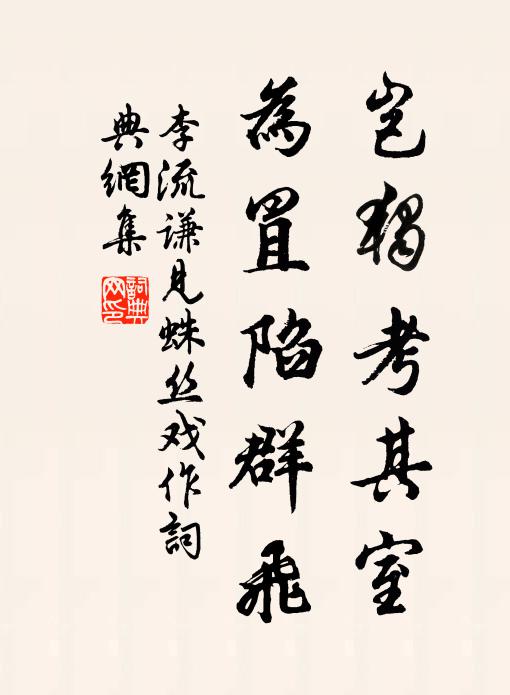 豈獨考其室
為罝陷群飛
李流謙見蛛丝戏作詞
典網集
詞典网印